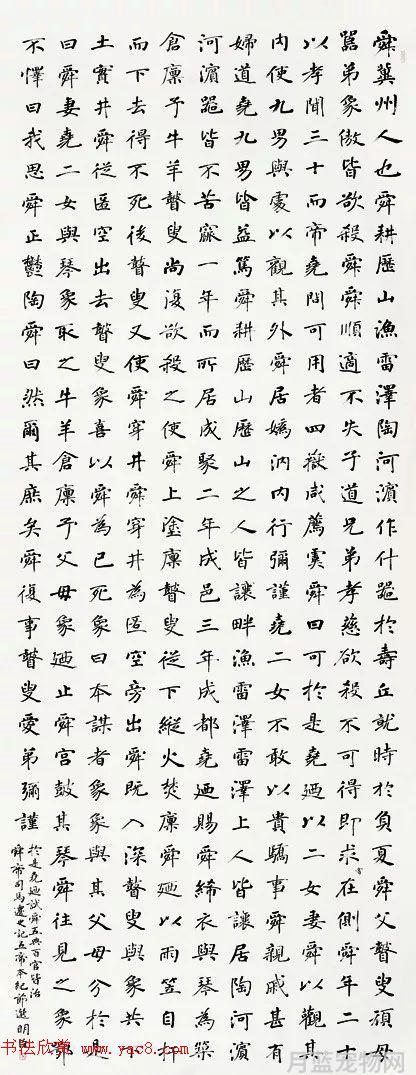 舜冀州人也舜耕歷山漁雷澤陶河濱作什器於壽丘就時於負夏舜父瞽叟頑母
嚚弟象傲皆欲殺舜舜順適不失子道兄弟孝慈欲殺不可得即求嘗在側舜年二十
以孝聞三十而帝堯問可用者四嶽咸薦虞舜曰可於是堯迺以二女妻舜以觀其
內使九男與處以觀其外舜居媯汭內行彌謹堯二女不敢以貴驕事舜親戚甚有
婦道堯九男皆益篤舜耕歷山歷山之人皆讓畔漁雷澤雷澤上人皆讓居陶河濱
河濱器皆不苦窳一年而所居成聚二年成邑三年成都堯迺賜舜絺衣與琴為築
倉廩予牛羊瞽叟尚復欲殺之使舜上塗廩瞽叟從下縱火焚廩舜迺以兩笠自扞
而下去得不死後瞽叟又使舜穿井舜穿井為匿空旁出舜既入深瞽叟與象共下
土實井舜從匿空出去瞽叟象喜以舜為已死象曰本謀者象象與其父母分於是
曰舜妻堯二女與琴象取之牛羊倉廩予父母象迺止舜宮鼓其琴舜往見之象鄂
不懌曰我思舜正鬱陶舜曰然爾其庶矣舜復事瞽叟愛弟彌謹
於是堯迺試舜五典百官皆治
舜帝司馬遷史記五帝本紀節選明
书法欣赏 www.yac8.com
月蓝宠物网